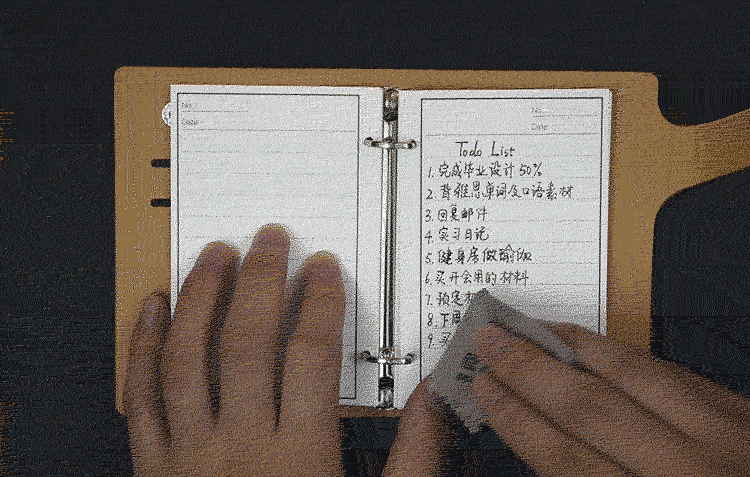 No.
Date
No.
Date
Todo List
1. 完成毕业设计50%
2. 背雅思单词及口语素材
3. 回复邮件
4. 实习日记
5. 健身房做瑜伽
6. 买开会用的材料
7. 预定
8. 下周
9. 买